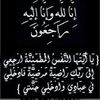 إِنَّا لِلّٰهِ وَإِنَّا إِلَيْهِ
رَاجِعُونَ
يَا أَيَّتُهَا النَّفْسُ الْمُطْمَئِنَّةُ ارْجِعِي
إِلَى رَبِّكِ رَاضِيَةً مَرْضِيَّةً فَادْخُلِي
فِي عِبَادِي وَادْخُلِي جَنَّتِي